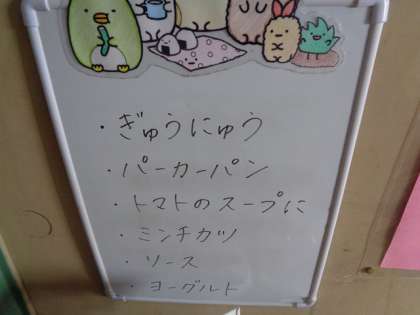 ・ぎゅうにゅう
・パーカーパン
・トマトのスープに
・ミンチカツ
・ソース
・ヨーグルト